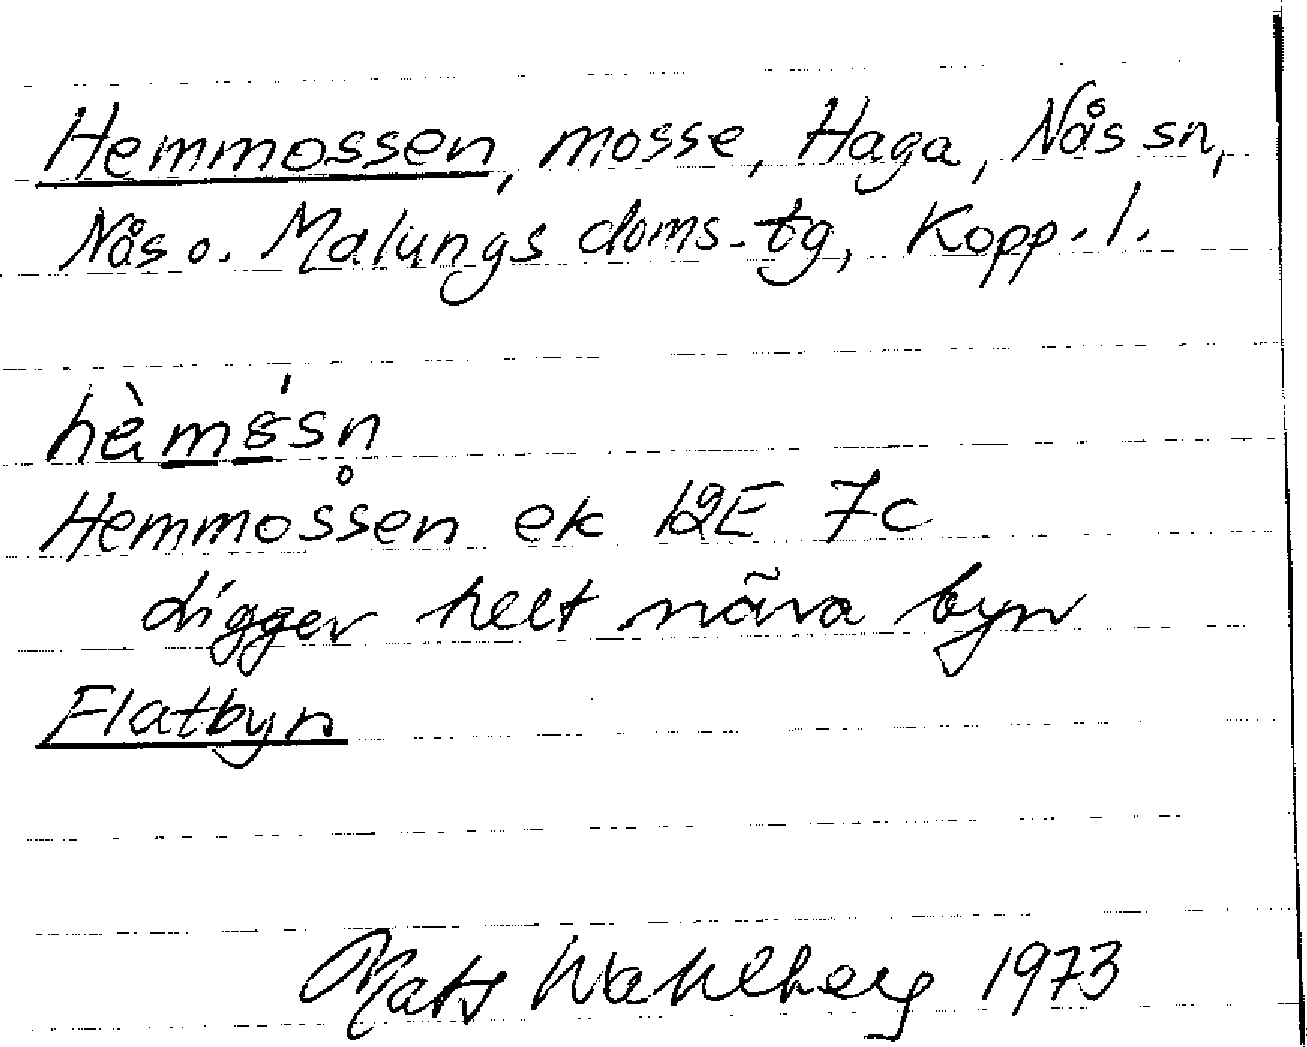 Hemmossen, mosse, Haga, Nås sn,
Nås o. Malungs doms.tg, Kopp.l.
Hemmossen ek 12E 7c
ligger helt nära byn
Flatbyn
Mats Wahlberg 1973